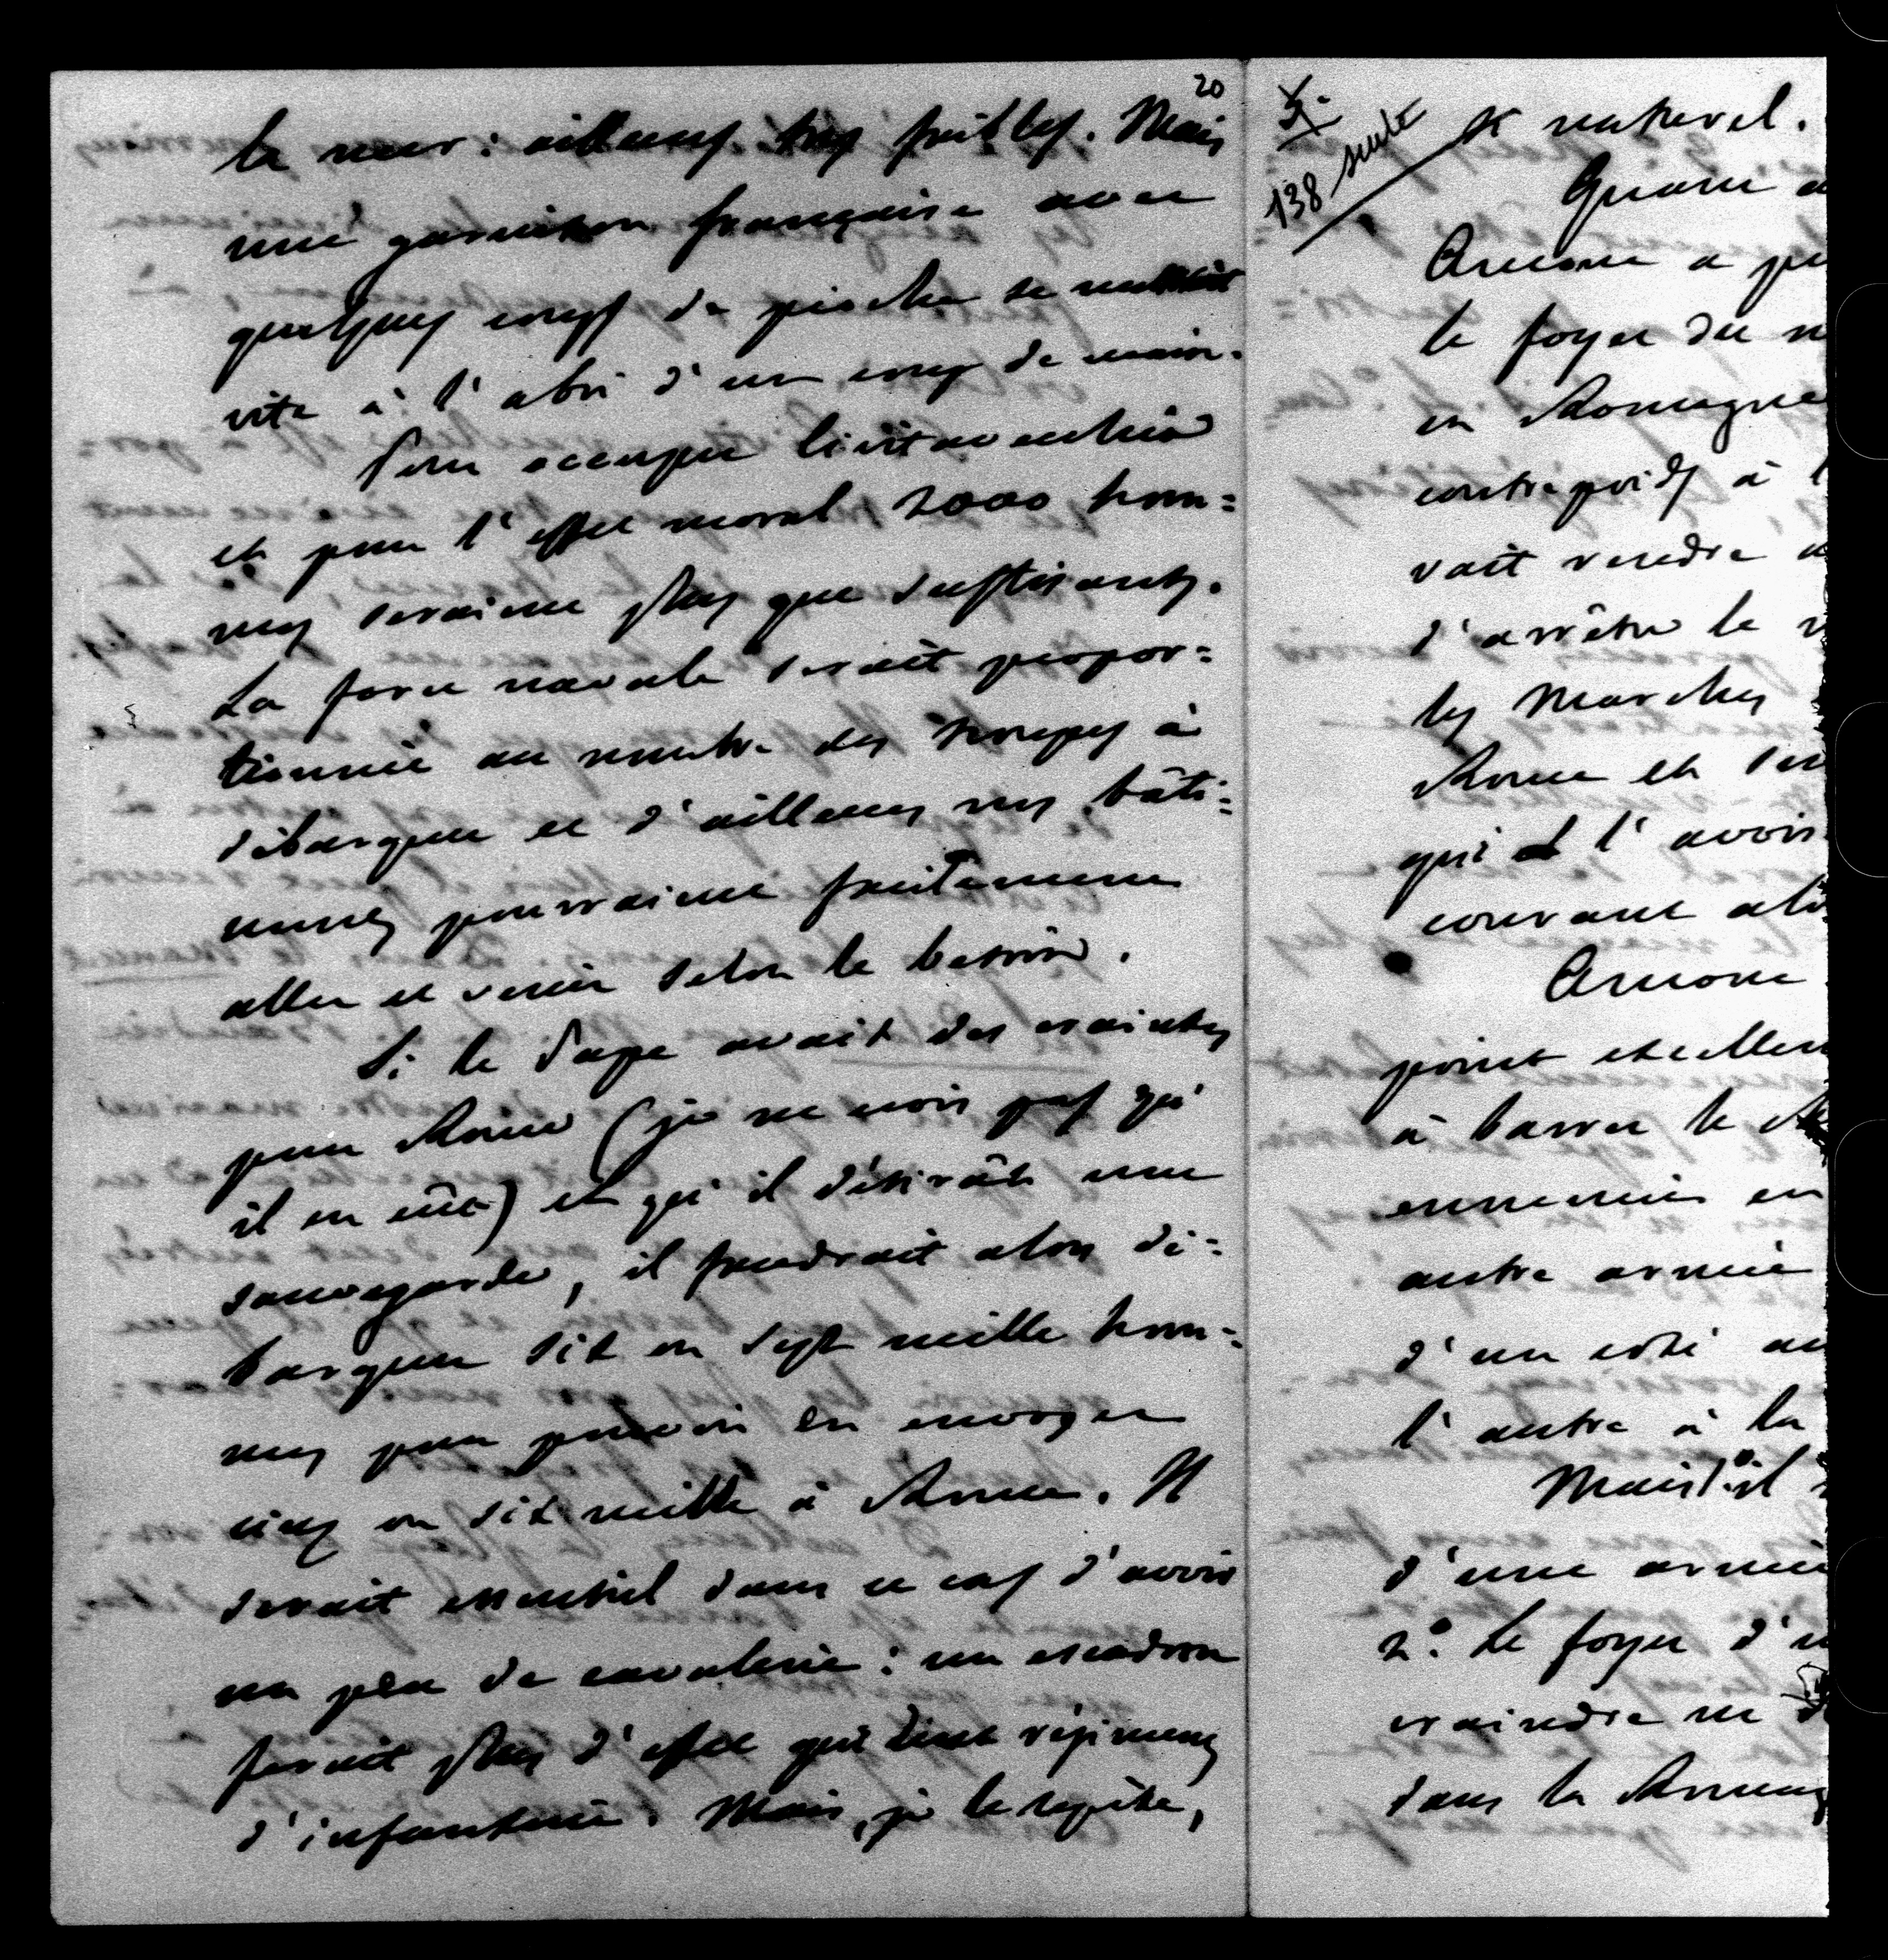 20
la mer : ailleurs très faibles. Mais
une garnison française avec
quelques coups de pioche se mettrait
vite à l'abri d'un coup de main.
Pour occuper Civitavecchia
et pour l'effet moral 2000 hom=
mes seraient plus que suffisants.
La force navale serait propor=
tionnée au nombre des troupes à
débarquer et d'ailleurs nos bâti=
ments pourraient facilement
aller et venir selon le besoin.
Si le Pape avait des craintes
pour Rome (je ne crois pas qu'
il en eût) et qu'il désirât une
sauvegarde, il faudrait alors dé=
barquer six ou sept mille hom=
mes pour pouvoir en envoyer
cinq ou six mille à Rome. Il
serait essentiel dans ce cas d'avoir
un peu de cavalerie : un escadron
ferait plus d'effet que deux régiments
d'infanterie. Mais, je le répète,
138 suite
et naturel.
Quant a
Ancone a pu
le foyer du m
en Romagne
contrepoids à l
vait rendre a
d'arrêter le
les Marches
Rome et
qui l'avois
courant
Ancone
point excellen
à barrer le
ennemie en
autre armée
d'un côté au
l'autre à la
Mais s'il
d'une armée
2° le foyer d'u
craindre ni
dans la Romag